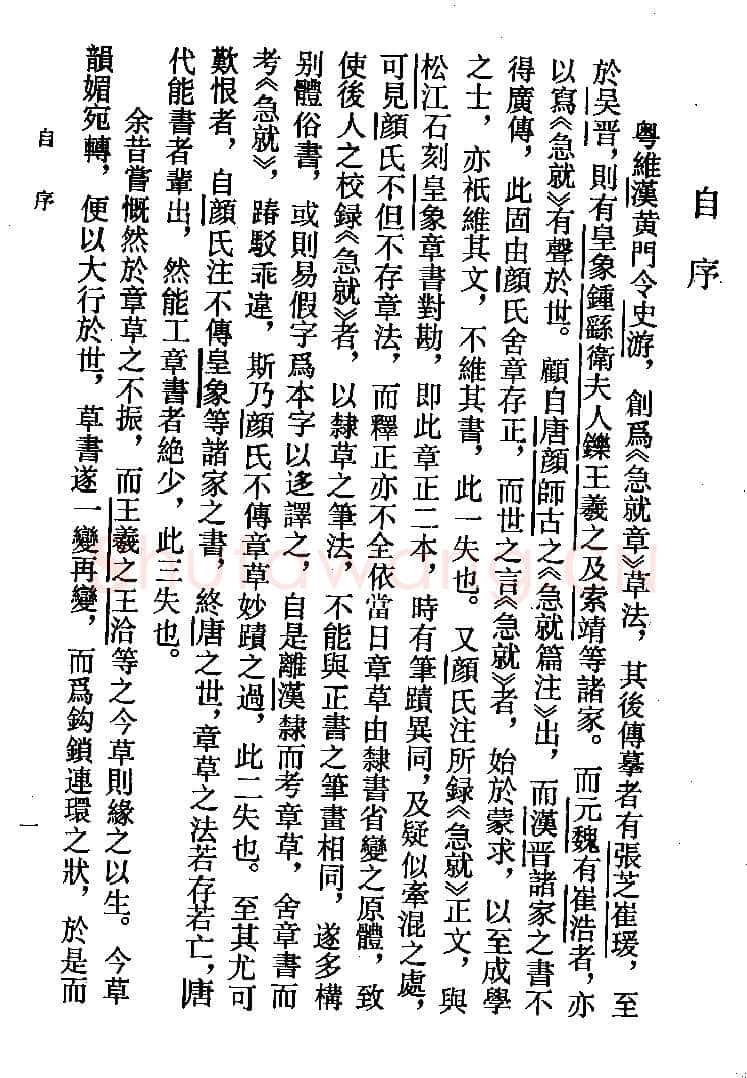 自序
粵維漢黃門令史游，創爲《急就章》草法，其後傳摹者有張芝崔瑗，至
於吴晋，則有皇象鍾繇衛夫人鑠王羲之及索靖等諸家。而元魏有崔浩者，亦
以寫《急就》有聲於世。顧自唐顔師古之《急就篇注》出，而漢晋諸家之書不
得廣傳，此固由顔氏舍章存正，而世之言《急就》者，始於蒙求，以至成學
之士，亦祇維其文，不維其書，此一失也。又顔氏注所録《急就》正文，與
松江石刻皇象章書對勘，即此章正二本，時有筆蹟異同，及疑似牽混之處，
可見顔氏不但不存章法，而釋正亦不全依當日章草由隸書省變之原體，致
使後人之校録《急就》者，以隸草之筆法，不能與正書之筆畫相同，遂多構
别體俗書，或則易假字爲本字以迻譯之，自是離漢隸而考章草，舍章書而
考《急就》，踳駁乖違，斯乃顔氏不傳章草妙蹟之過，此二失也。至其尤可
歎恨者，自顔氏注不傳皇象等諸家之書，終唐之世，章草之法若存若亡，唐
代能書者輩出，然能工章書者絶少，此三失也。
余昔嘗慨然於章草之不振，而王羲之王洽等之今草則緣之以生。今草
韻媚宛轉，便以大行於世，草書遂一變再變，而爲鈎鎖連環之狀，於是而
自序
一
shufawang.cn